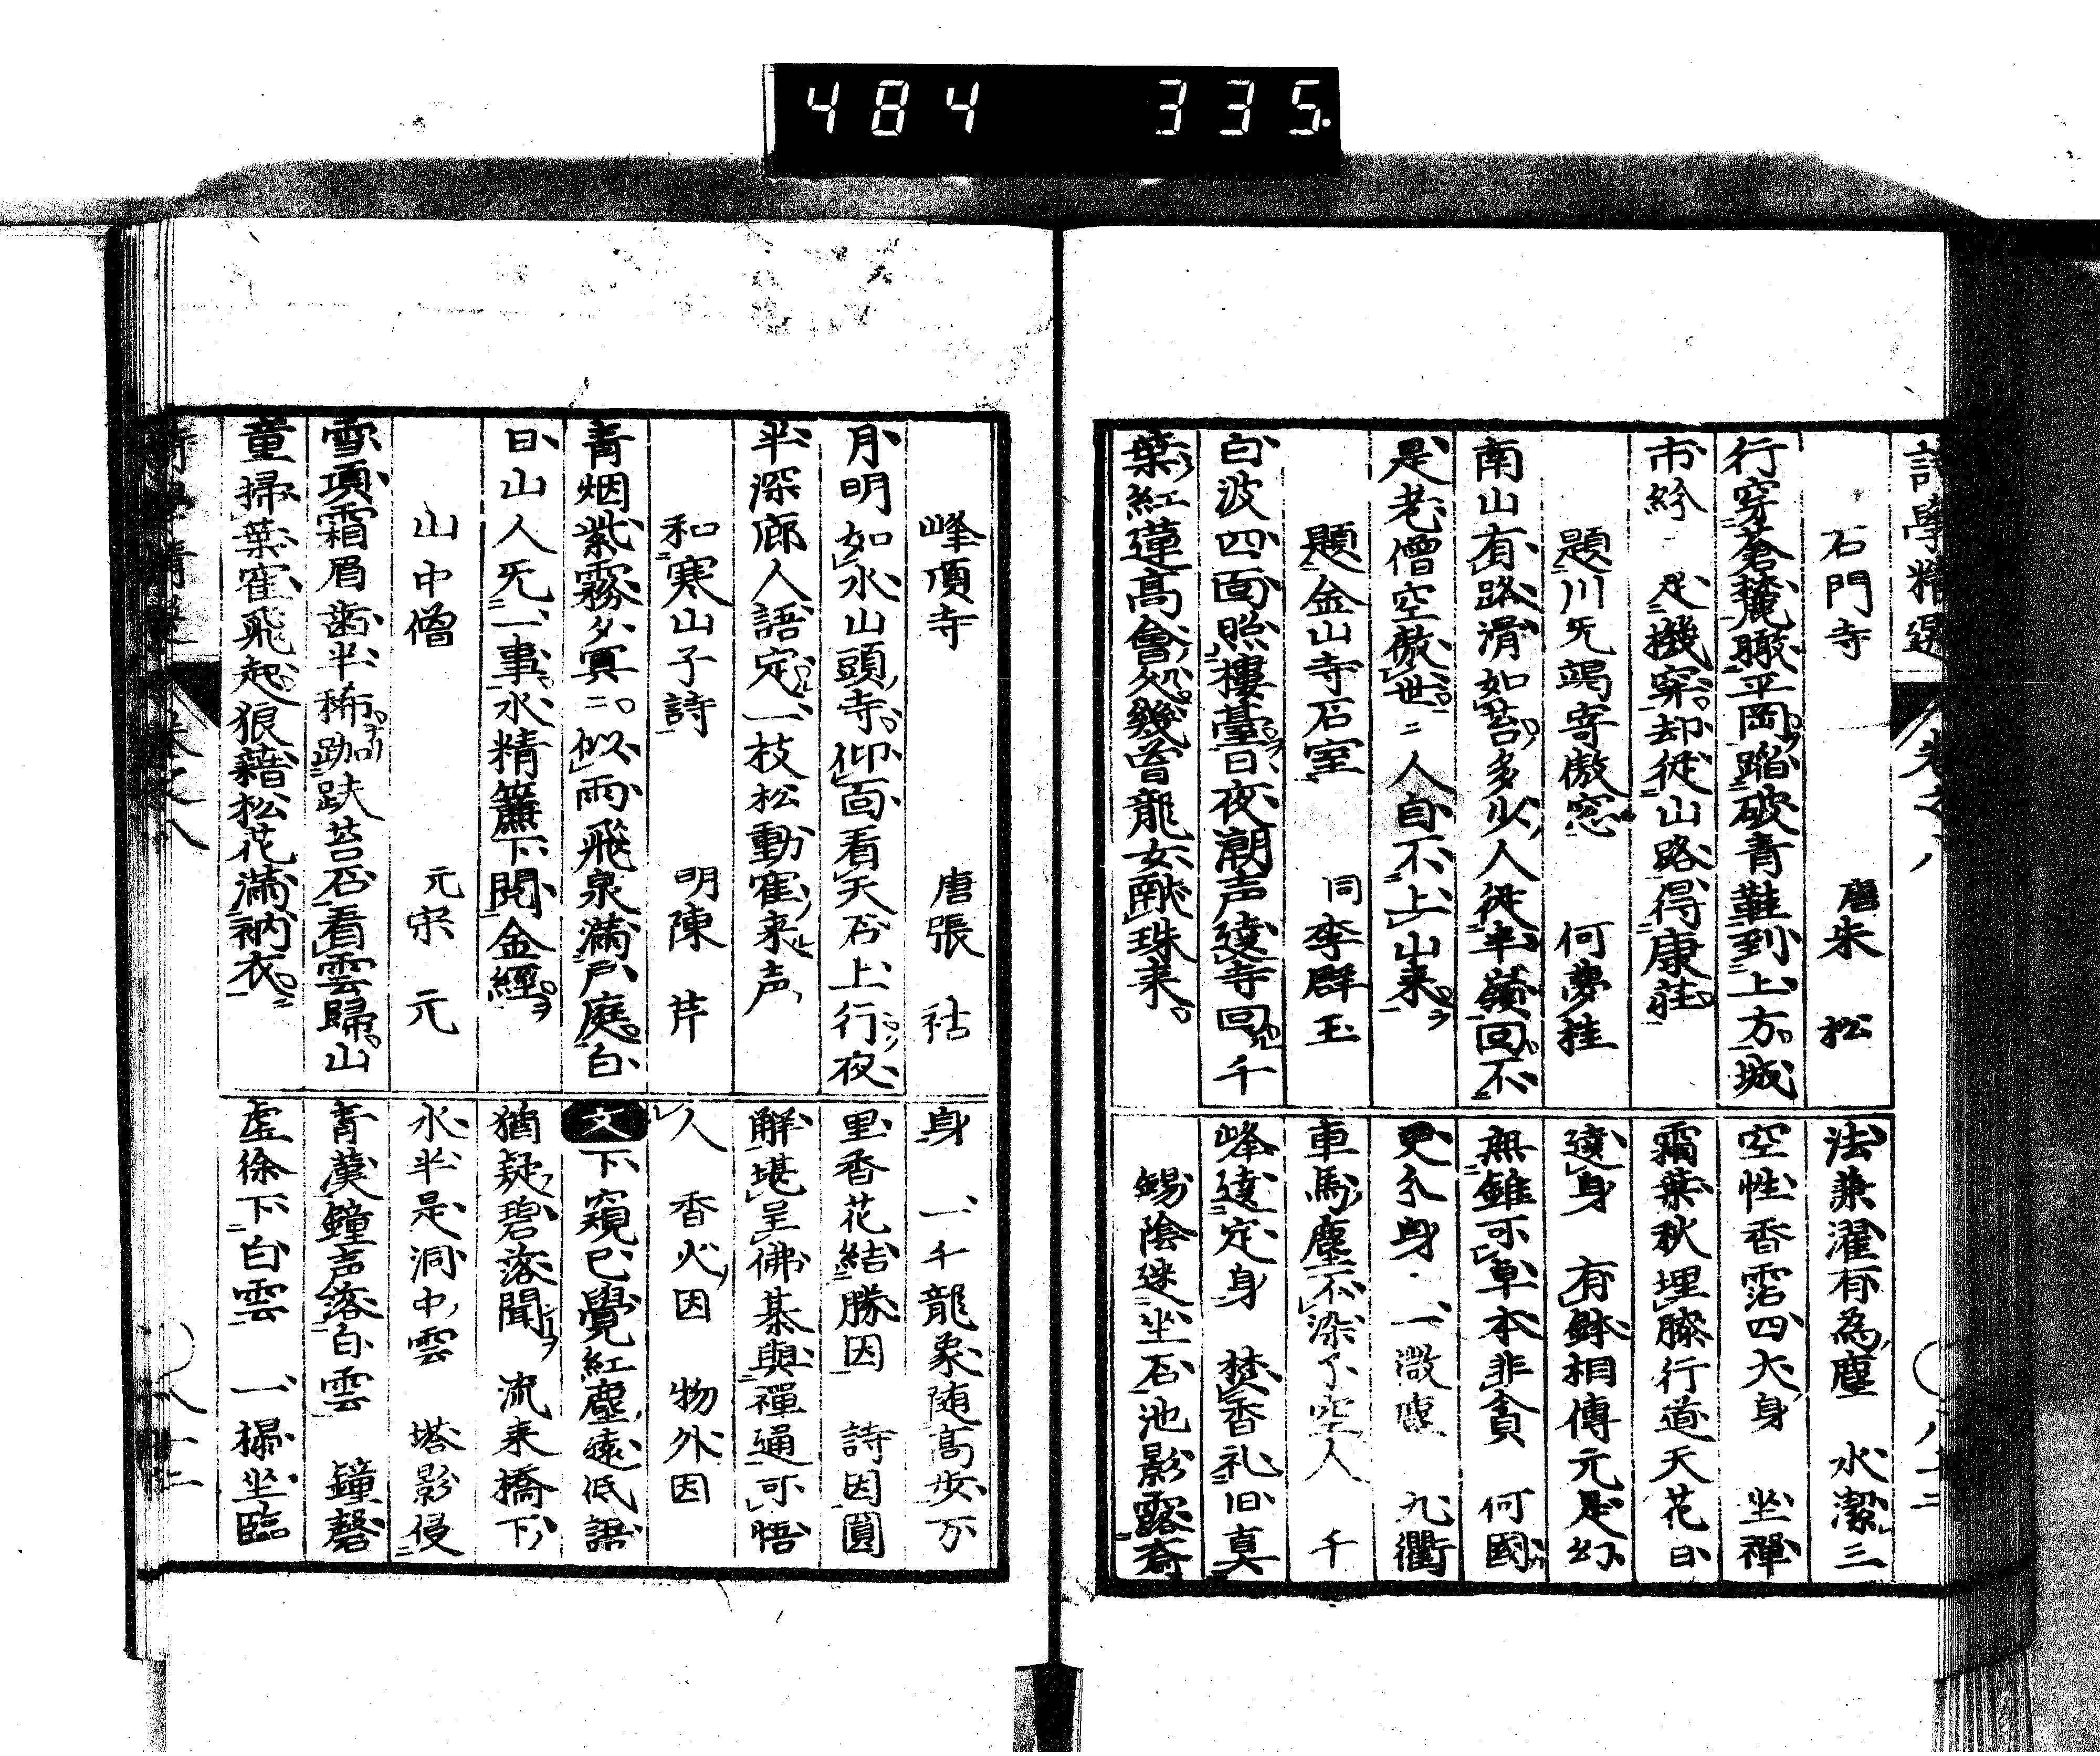 484 335.
詩學精選 卷之八
石門寺 唐朱松
行穿蒼麓瞰平岡踏破青鞋到上方城
市紛 足機穽却從山路得康莊
題川无竭寄傲窓 何夢桂
南山有路滑如苔多少人從半嶺回不
是老僧空傲世二人自不上山来
題金山寺石室 同李群玉
白波四面照樓臺日夜潮声遶寺回千
葉紅蓮高會処幾曾龍女献珠来
法兼濯有為塵 水潔三
空性香霑四大身 坐禪
霜葉秋埋膝行道天花日
遶身 有鉢相傳元是幻
無錐可卓本非貪 何國
更分身 一微塵 九衢
車馬塵不染了空人 千
峰遶定身 焚香礼旧真
錫陰迷坐石池影露斎
峰頂寺 唐張祜
月明如水山頭寺仰面看天石上行夜
半深廊人語定一枝松動寉来声
和寒山子詩 明陳芹
青烟紫霧夕冥二似雨飛泉滿戸庭白
日山人无一事水精簾下閲金經
山中僧 元宋元
雪項霜眉歯半稀跏趺苔石看雲歸山
童掃葉寉飛起狼藉松花滿衲衣
身 一千龍象随高歩万
里香花結勝因 詩因圓
解堪呈佛棊與禪通可悟
人 香火因 物外因
文 下窺已覺紅塵遠低語
猶疑碧落聞 流来橋下
水半是洞中雲 塔影侵
青漢鐘声落白雲 鐘磬
虚徐下白雲 一榻坐臨